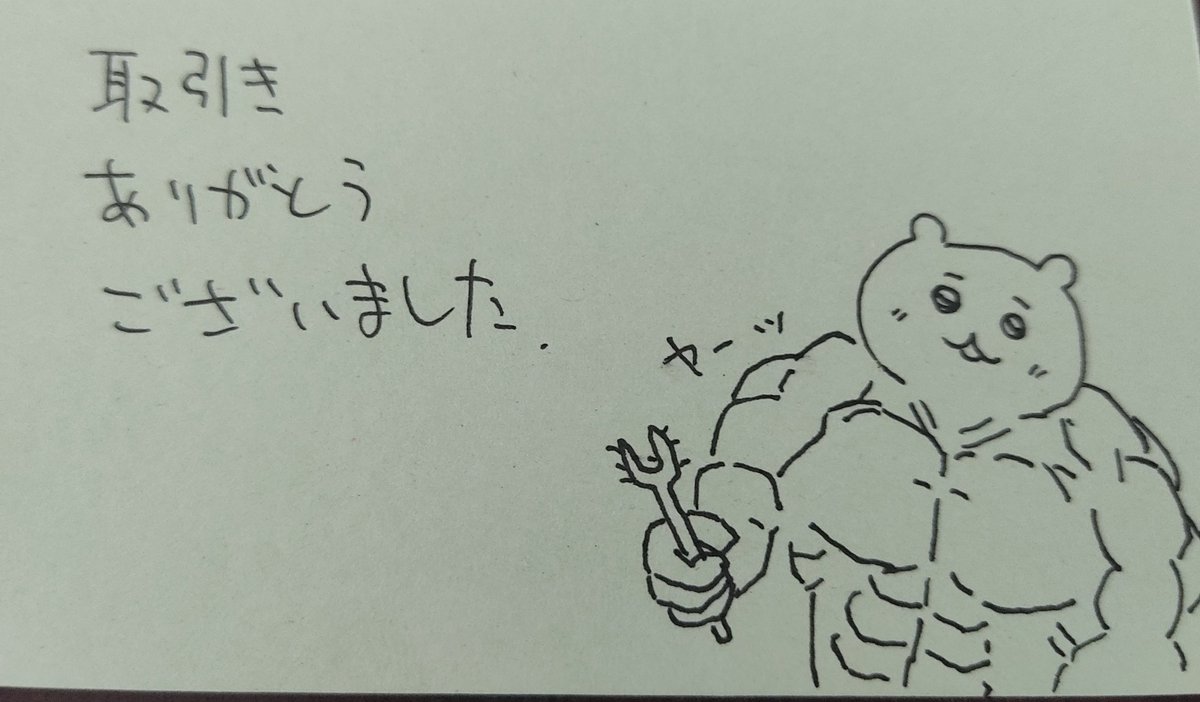 取引き
ありがとう
ございました.
ヤーッ